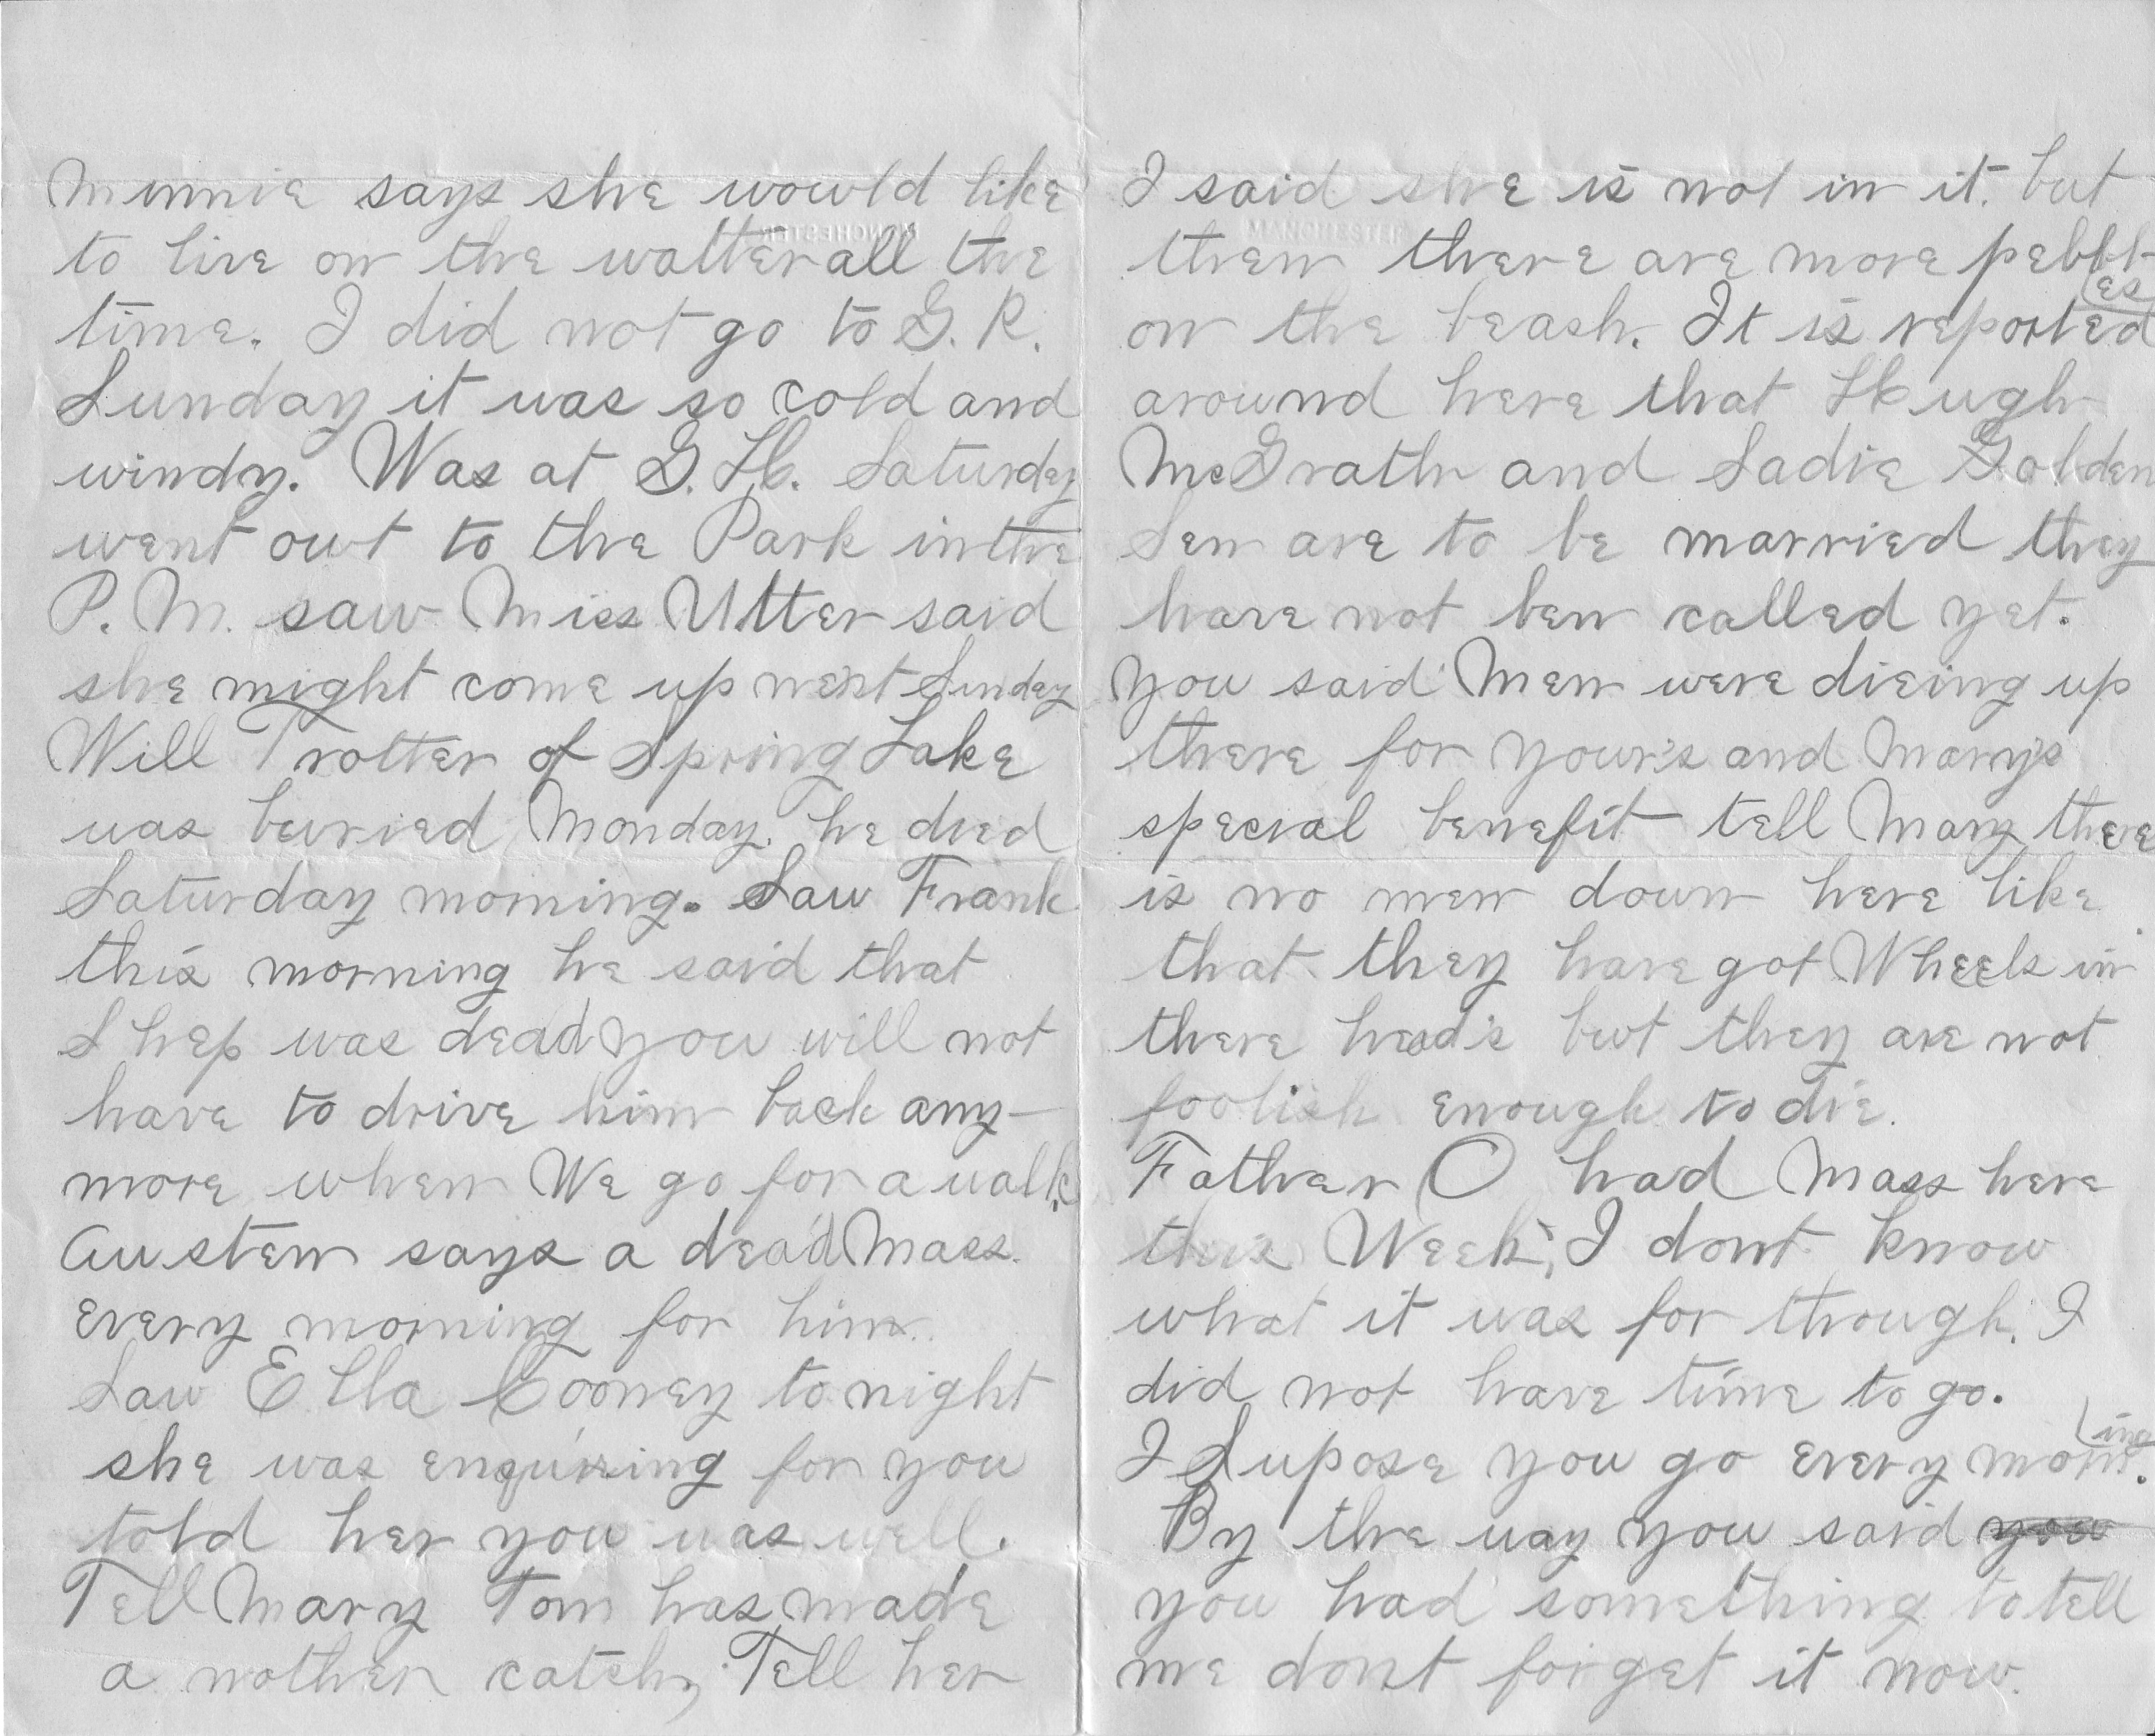 Minnie says she would like
to live on the watter all the
time. I did not go to G. R.
Sunday it was so cold and
windy. Was at G. H. Saturday
went out to the Park in the
P. M. saw Miss Utter said
she might come up next Sunday
Will Trotter of Spring Lake
was buried Monday. he died
Saturday morning. Saw Frank
this morning he said that
Shep was dead you will not
have to drive him back any-
more when We go for a walk.
Austen says a dead Mass.
every morning for him.
Saw Ella Cooney to night
she was enquiring for you
told her you was well.
Tell Mary Tom has made
a nother catch, Tell her
I said she is not in it. but
then there are more pebbl-
es
on the beach. It is reported
around here that Hugh
McGrath and Sadie Golden
Sen are to be married they
have not ben called yet.
You said Men were dieing up
there for your's and Mary's
special benefit tell Mary there
is no men down here like
that they have got Wheels in
there head's but they are not
foolish enough to die.
Father O had Mass here
this Week, I dont know
what it was for though. I
did not have time to go.
I Supose you go every morn.
ing
By the way you said you
you had something to tell
me dont forget it now.
MANCHESTER